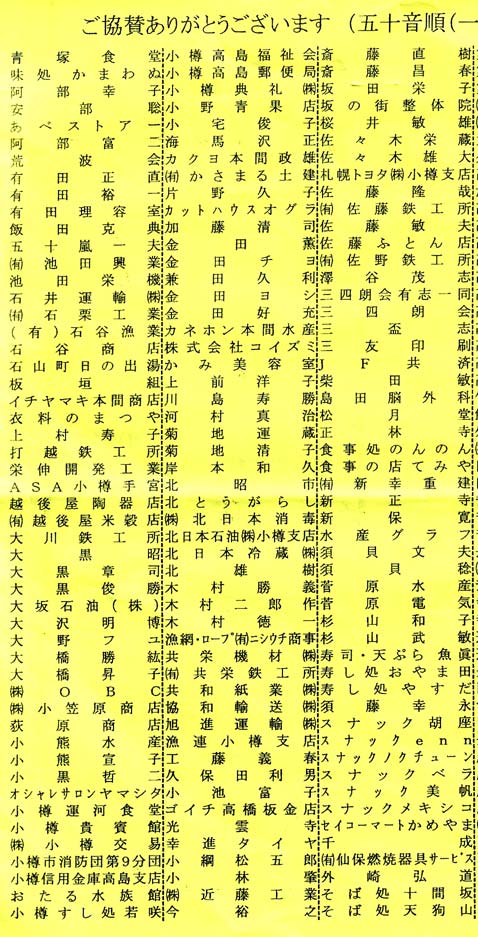 ご協賛ありがとうございます (五十音順(一
青塚食堂
味処かまわぬ
阿部幸子
安部聡
あべストアー
阿部富二
荒波会
有田正直
有田裕一
有田理容室
飯田克典
五十嵐一夫
㈲池田興業
池田栄機
石井運輸㈱
㈲石栗工業
(有)石谷漁業
石谷商店
石山町日の出湯
板垣組
イチヤマキ本間商店
衣料のまつや
上村寿子
打越鉄工所
栄伸開発工業
ASA小樽手宮
越後屋陶器店
㈲越後屋米穀店
大川鉄工所
大黒昭
大黒章司
大黒俊勝
大坂石油(株)
大沢明博
大野フユ
大橋勝紘
大橋昇子
㈱OBC
㈱小笠原商店
荻原商店
小熊水産
小熊宣子
小黒哲二
オシャレサロンヤマシタ
小樽運河食堂
小樽貴賓館
㈱小樽交易
小樽市消防団第9分団
小樽信用金庫高島支店
おたる水族館
小樽すし処若咲
小樽高島福祉会
小樽高島郵便局
小樽典礼㈱
小野青果店
小宅俊子
海馬沢正
カクヨ本間政雄
㈲かさまる土建
片野久子
カットハウスオグラ
加藤清司
金田薫
金田チヨ
兼田久利
金田ヨシ
金田好充
カネホン本間水産
株式会社コイズミ
かみ美容室
上前洋子
川島寿勝
河村真治
菊地運蔵
菊地清子
岸本和久
北昭市
北とうがらし
㈱北日本消毒
北日本石油㈱小樽支店
北日本冷蔵㈱
北雄樹
木村勝義
木村二郎
木村徳一
漁網・ロープ㈲ニシウチ商事
共栄機材㈱
㈲共栄鉄工所
共和紙業㈱
協和輸送㈱
旭進運輸㈱
漁連小樽支店
工藤義春
久保田利男
小池富子
ゴイチ高橋板金店
光雲寺
幸進タイヤ
小綱松五郎
小林肇
㈱近藤工業
今裕之
斎藤直樹
斎藤昌春
坂田栄子
坂の街整体院
桜井敏雄
佐々木栄蔵
佐々木雄大
札幌トヨタ㈱小樽支店
佐藤隆哉
㈲佐藤鉄工所
佐藤敏夫
佐藤ふとん店
㈲佐野鉄工所
澤谷茂志
三四朗会有志一同
三四朗会
三盃志
三友印刷
JF共済
柴田敏
島田脳外科
松月堂
正林寺
食事処のんのん
食事の店てみや
㈲新幸重建
新正寺
新保寛
水産グラフ
須貝文夫
須貝稔
菅原水産
菅原電気
杉山和子
杉山武敏
寿司・天ぷら魚眞
寿し処おやま田
寿し処やすだ
須藤幸永
スナック胡座
スナックenn
スナックノクチューン
スナックベラ
スナック美帆
スナックメキシコ
セイコーマートかめやま
千成
㈲仙保燃焼器具サービス
外崎弘道
そば処十間坂
そば処天狗山